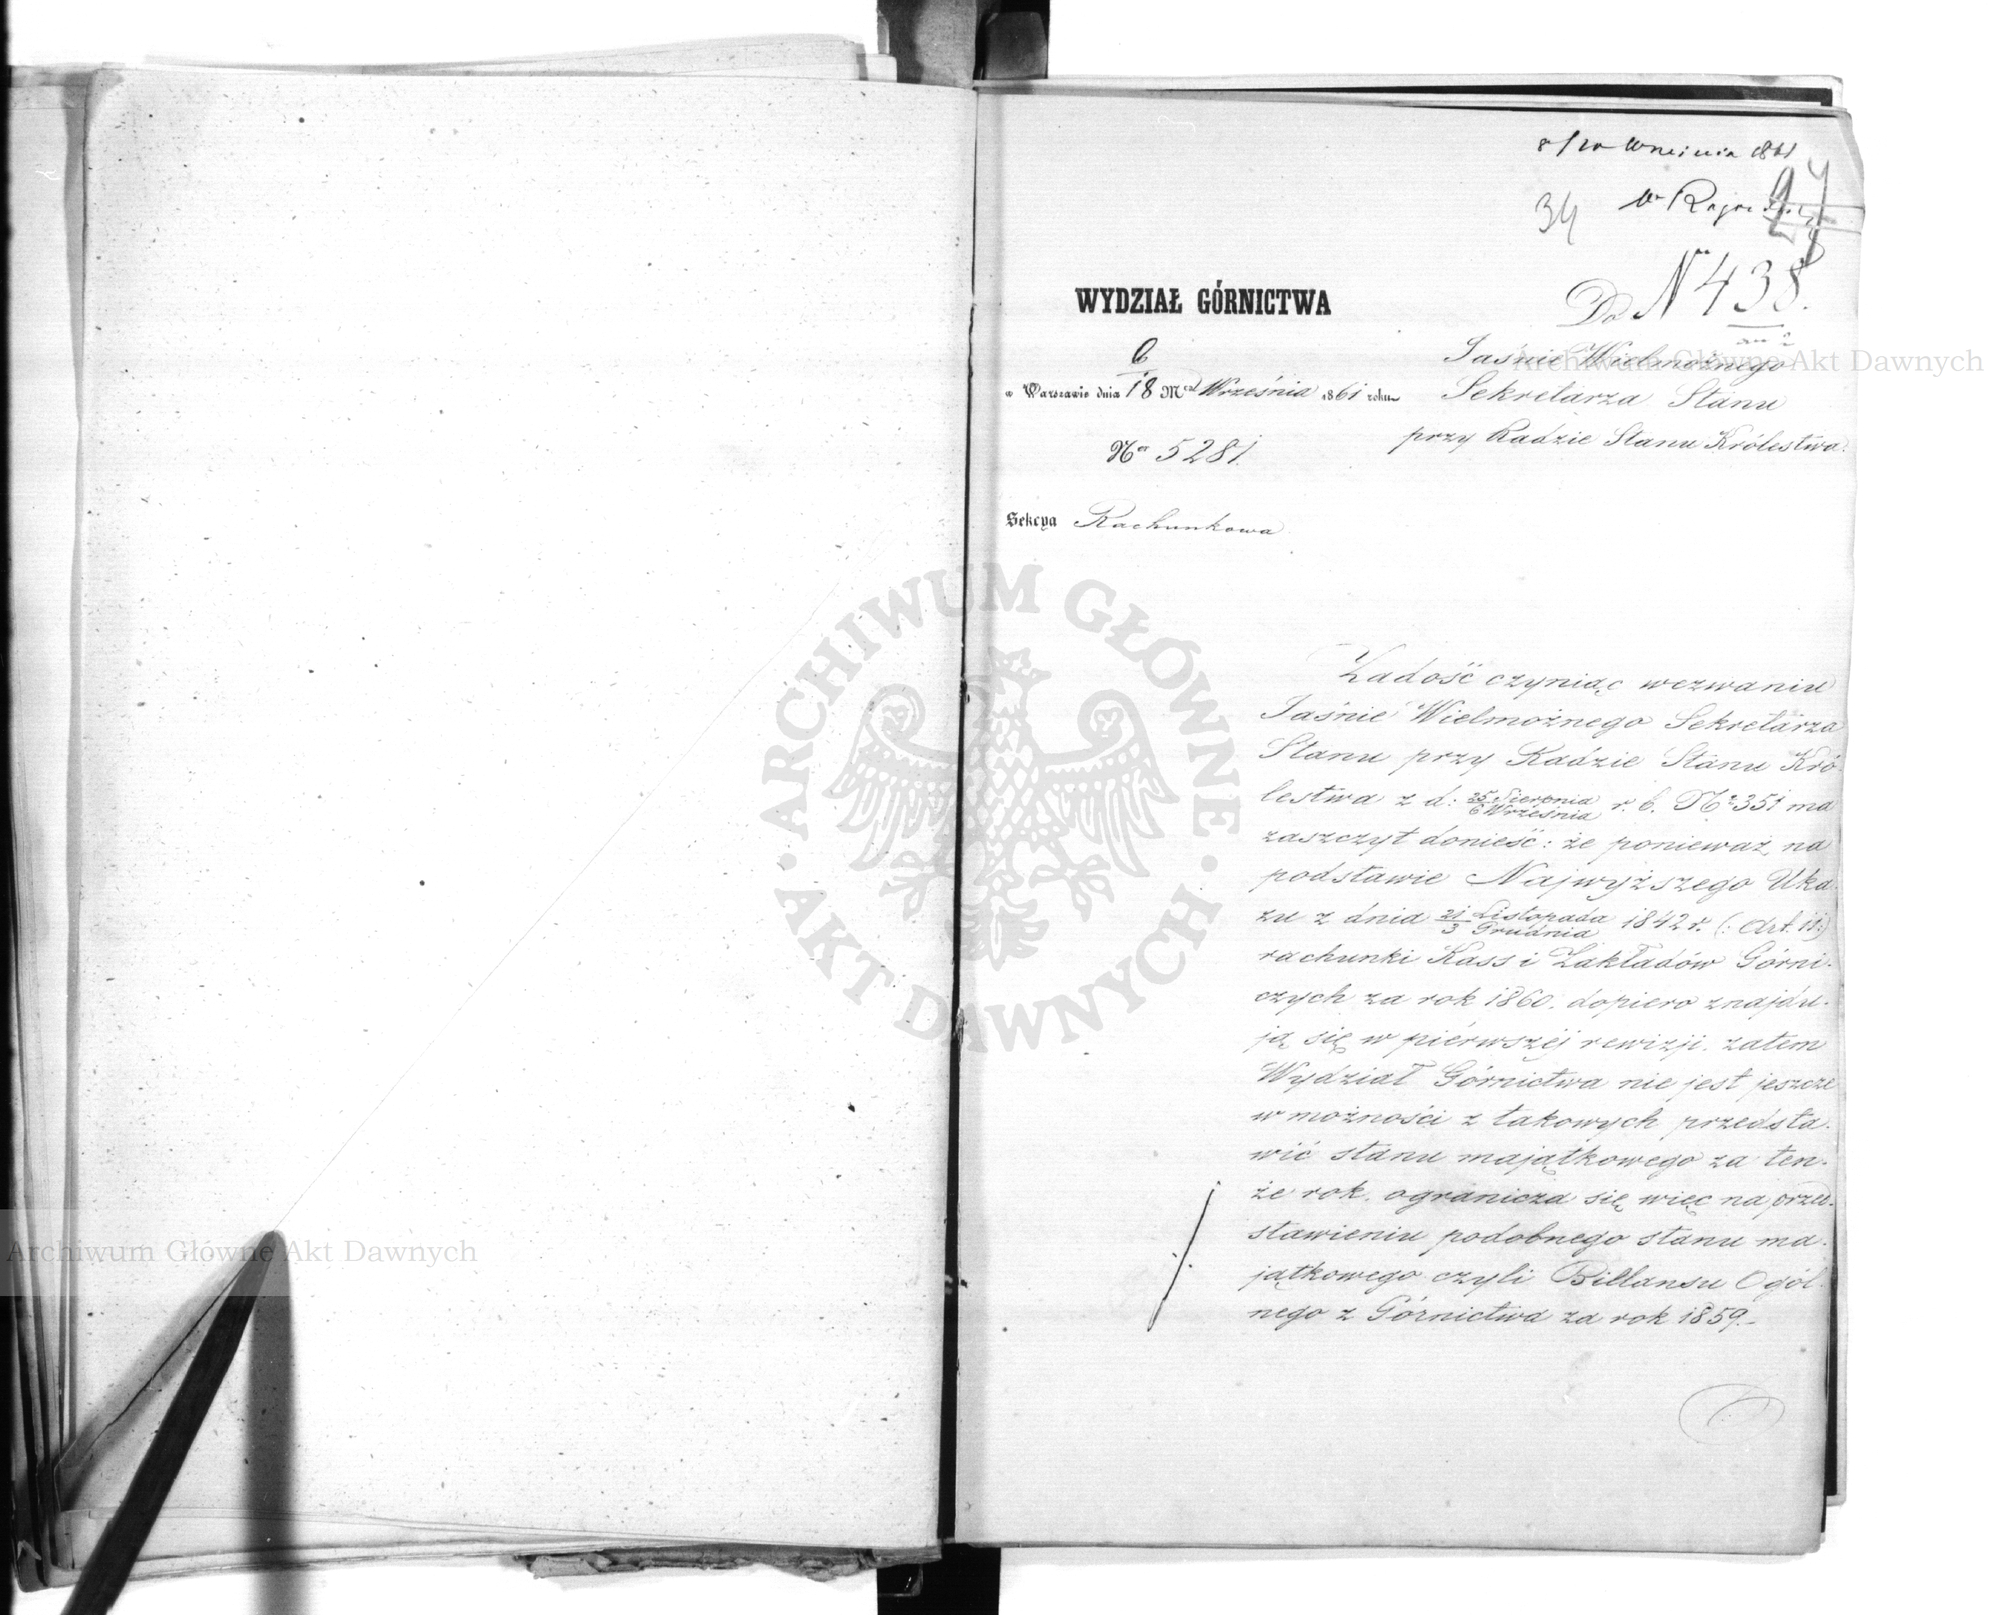 8/20 Września 1861
34
27
Nr 438.
WYDZIAŁ GÓRNICTWA
Do
Jaśnie Wielmożnego
Sekretarza Stanu
przy Radzie Stanu Królestwa.
w Warszawie dnia 6/18 Mca Września 1861 roku
No 5281.
Sekcya Rachunkowa
Zadość czyniąc wezwaniu
Jaśnie Wielmożnego Sekretarza
Stanu przy Radzie Stanu Kró-
lestwa z d: 25 Sierpnia/6 Września r. b. No 351 ma
zaszczyt donieść: że ponieważ na
podstawie Najwyższego Uka-
zu z dnia 21 Listopada/3 Grudnia 1842 r. (: Art. 11:)
rachunki Kass i Zakładów Górni-
czych za rok 1860. dopiero znajdu-
ją się w piérwszéj rewizji. zatem
Wydział Górnictwa nie jest jeszcze
w możności z takowych przedsta-
wić stanu majątkowego za ten-
że rok. ogranicza się więc na przed-
stawieniu podobnego stanu ma-
jątkowego czyli Billansu Ogól-
nego z Górnictwa za rok 1859.-
ARCHIWUM GŁÓWNE AKT DAWNYCH
Archiwum Główne Akt Dawnych
Archiwum Główne Akt Dawnych